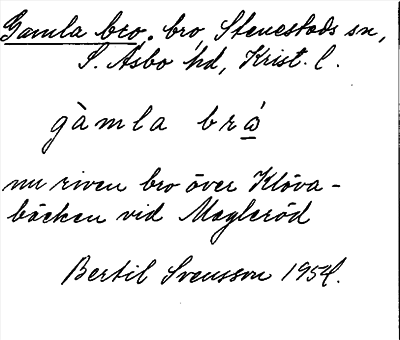 Gamla bro. bro, Stenestads sn,
S. Åsbo hd, Krist. l.
gàmla brώ̲
nu riven bro över Klöva-
bäcken vid Magleröd
Bertil Svensson 1954.